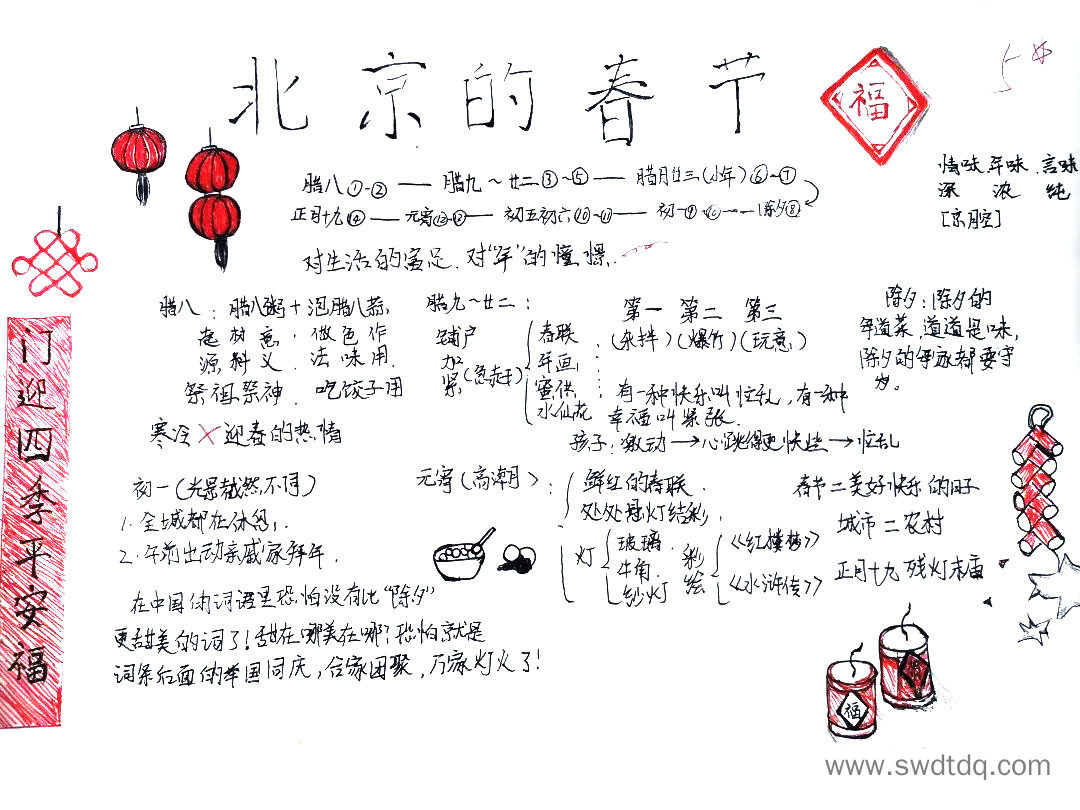 北京的春节
福
5
情味 年味 言味
深 浓 纯
[京腔]
腊八①-② — 腊九~廿二③~⑤ — 腊月廿三(小年)⑥~⑦
正月十九⑭ — 元宵⑫⑬ — 初五初六⑩-⑪ — 初一⑨⑩ — 除夕⑧
对生活的满足.对"年"的憧憬.
门迎四季平安福
腊八:腊八粥+泡腊八蒜
意材意:做色作
源料义.法味用.
祭祖祭神.吃饺子用
寒冷×迎春的热情
腊九~廿二:
铺户加紧(急赶)
春联
年画
蜜供
水仙花
第一 第二 第三
(杂拌)(爆竹)(玩意)
有一种快乐叫忙乱,有一种
幸福叫紧张.
孩子:激动→心跳得更快些→忙乱
除夕:除夕的
年道菜,道道是味,
除夕的年夜都要守
岁。
初一(光景截然不同)
1.全城都在休息.
2.午前出动亲戚家拜年.
元宵(高潮):
鲜红的春联.
处处悬灯结彩.
灯
玻璃.
牛角.
纱灯
彩绘
《红楼梦》
《水浒传》
春节二美好快乐的日子
城市二农村
正月十九 残灯末庙
在中国的词语里恐怕没有比"除夕"
更甜美的词了!甜在哪美在哪?恐怕就是
词条后面的举国同庆,合家团聚,万家灯火了!
福
www.swdtdq.com